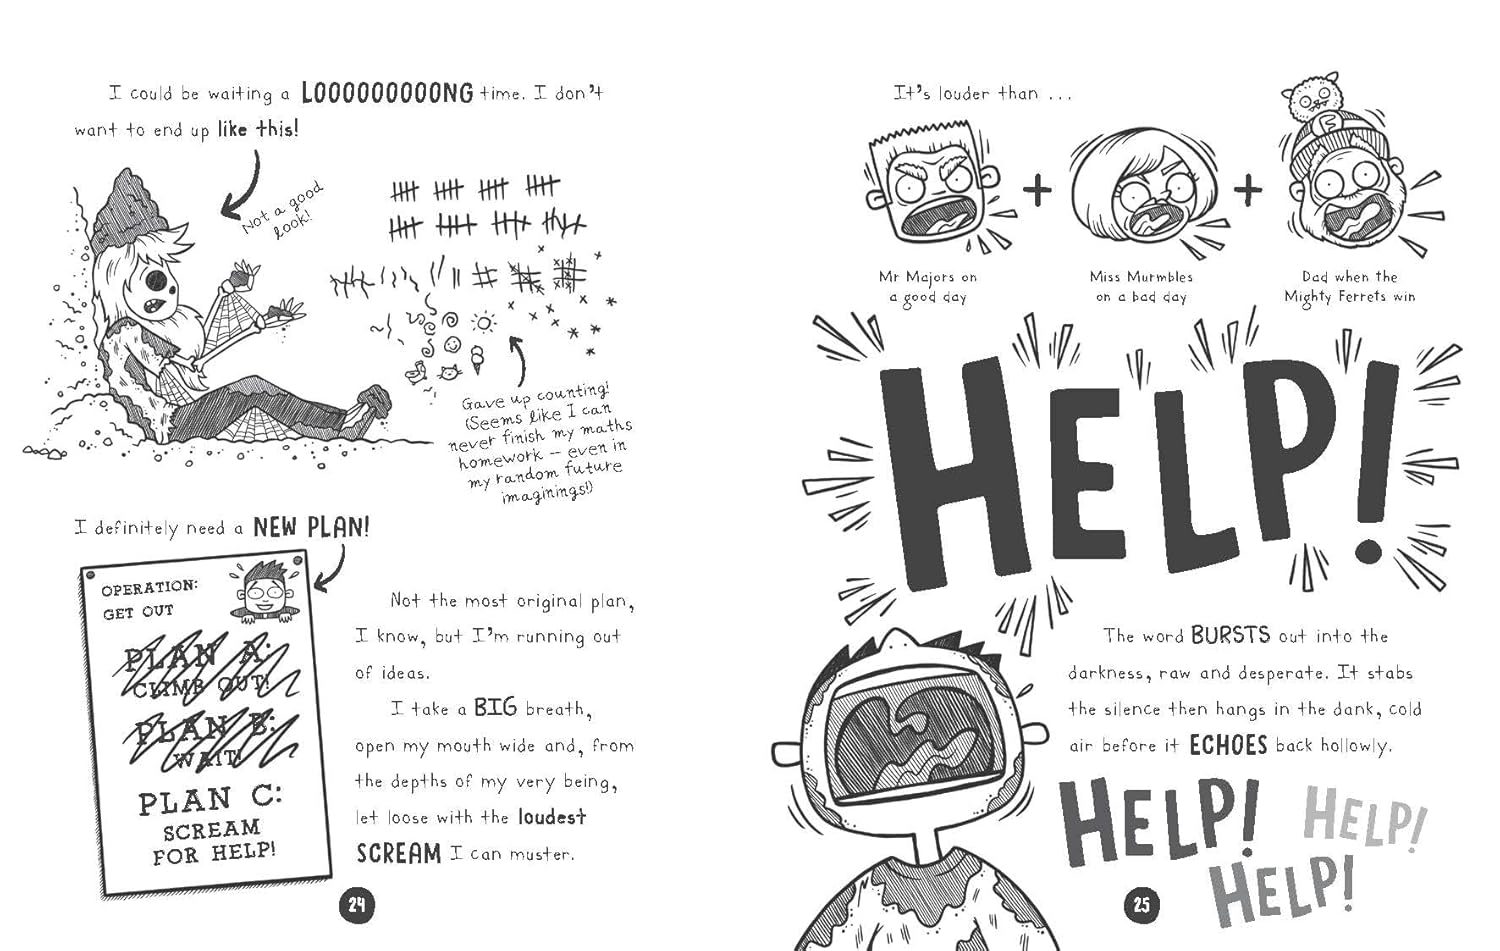 I could be waiting a LOOOOOOOOONG time. I don't
want to end up like this!
Not a good
look!
Gave up counting!
(Seems like I can
never finish my maths
homework – even in
my random future
imaginings!)
I definitely need a NEW PLAN!
OPERATION:
GET OUT
PLAN A:
CLIMB OUT!
PLAN B:
WAIT!
PLAN C:
SCREAM
FOR HELP!
Not the most original plan,
I know, but I'm running out
of ideas.
I take a BIG breath,
open my mouth wide and, from
the depths of my very being,
let loose with the loudest
SCREAM I can muster.
24
It's louder than ...
F
+
+
Mr Majors on
a good day
Miss Murmbles
on a bad day
Dad when the
Mighty Ferrets win
HELP!
The word BURSTS out into the
darkness, raw and desperate. It stabs
the silence then hangs in the dank, cold
air before it ECHOES back hollowly.
HELP!
HELP!
HELP!
25